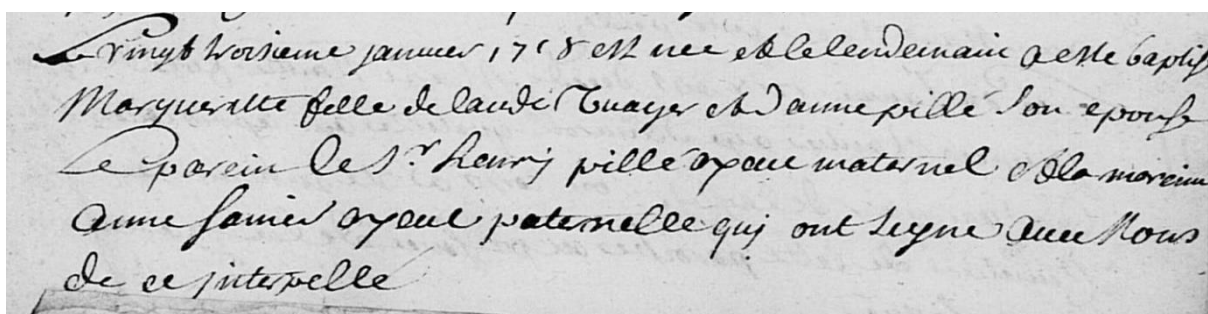 Le vingt troisieme janvier 1718 est nee et le lendemain a este baptis
Margueritte fille de laude et d anne pille son epouse
Le parein le Sr henry pille ayeul maternel et la mareinne
anne ayeul paternelle qui ont signe avec Nous
de ce interpellé